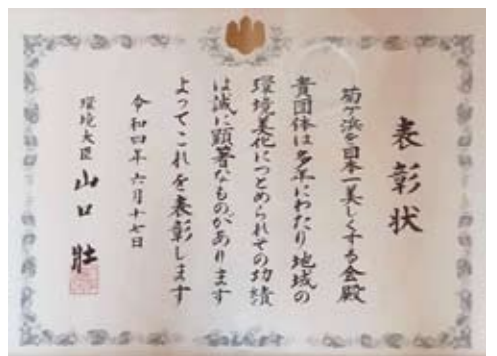 表彰状
菊ヶ浜を日本一美しくする会殿
貴団体は多年にわたり地域の
環境美化につとめられその功績
は誠に顕著なものがあります
よってこれを表彰します
令和四年六月十七日
環境大臣 山口 壯